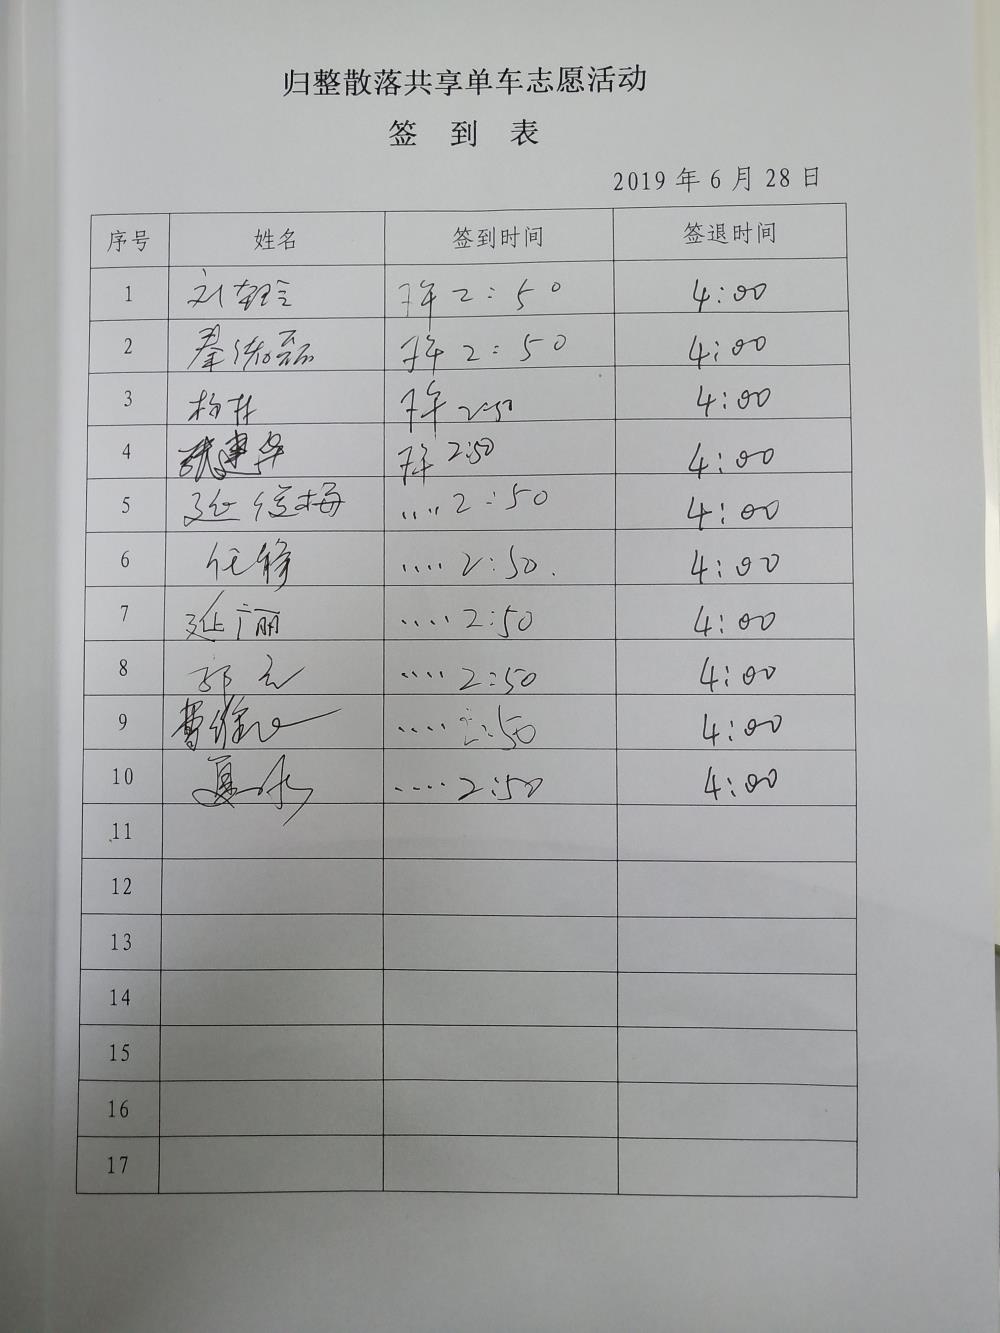 归整散落共享单车志愿活动
签 到 表
2019年6月28日
序号 姓名 签到时间 签退时间
1 刘 下午2:50 4:00
2 秦 下午2:50 4:00
3 杨 下午2:50 4:00
4 张建华 下午2:50 4:00
5 延俊梅 ....2:50 4:00
6 任 ....2:50. 4:00
7 延丽 ....2:50 4:00
8 郭 ....2:50 4:00
9 曹 ....2:50 4:00
10 夏 ....2:50 4:00
11
12
13
14
15
16
17